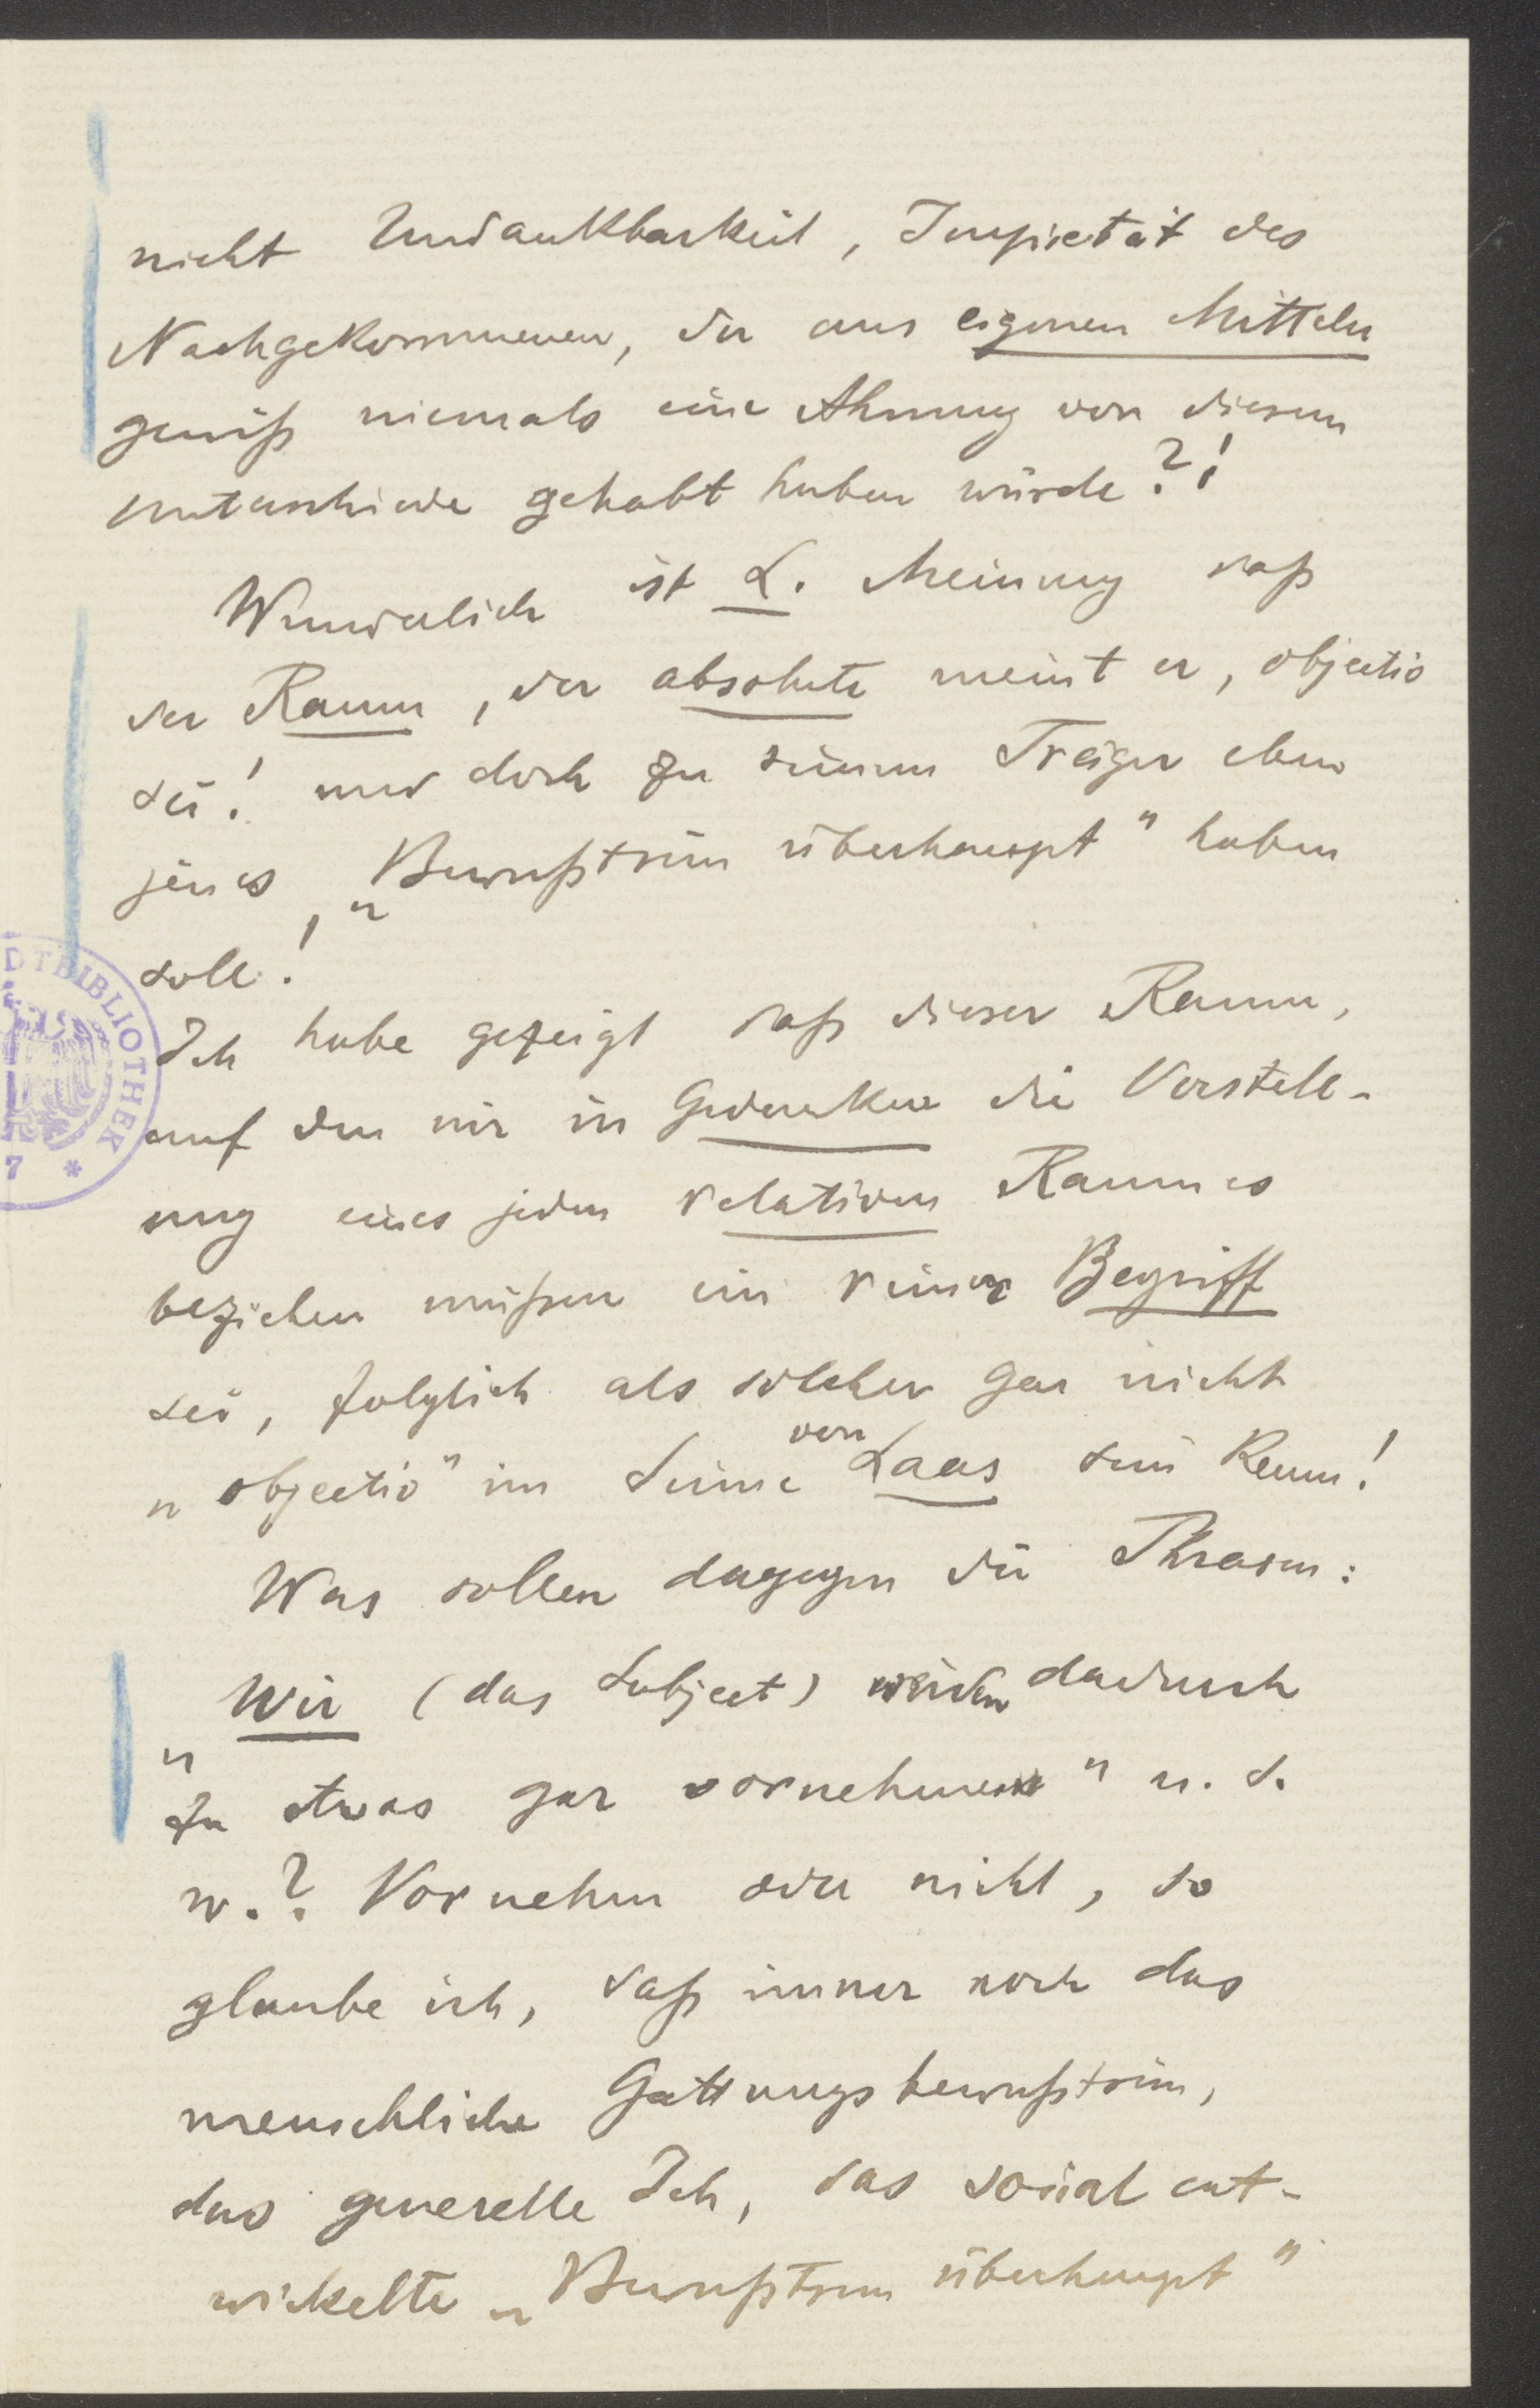 nicht Undankbarkeit, Impietät des
Nachgekommenen, der aus eigenen Mitteln
gewiß niemals eine Ahnung von diesem
Unterschiede gehabt haben würde?!
Wunderlich ist L. Meinung daß
der Raum, der absolute meint er, objectiv
sei! und doch zu seinem Träger eben
jenes, „Bewußtsein überhaupt" haben
soll!
Ich habe gezeigt daß dieser Raum,
auf den wir in Gedanken die Vorstell-
ung eines jeden relativen Raumes
beziehen müßen ein reiner Begriff
sei, folglich als solcher gar nicht
„objectiv" im Sinne von Laas sein kann!
Was sollen dagegen die Phrasen:
„Wir (das Subject) würden dadurch
zu etwas gar vornehmem" u. s.
w.? Vornehm oder nicht, so
glaube ich, daß immer noch das
menschliche Gattungsbewußtsein,
das generelle Ich, das social ent-
wickelte „Bewußtsein überhaupt"
DTBIBLIOTHEK
7 *